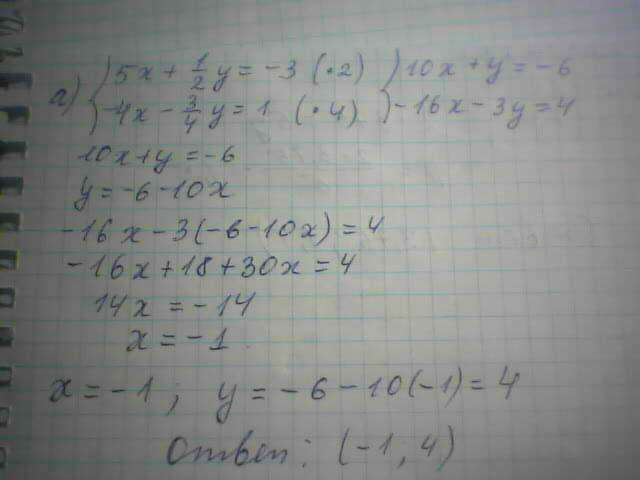 а) { 5x + 1/2 y = -3 (·2) } 10x + y = -6
{ -4x - 3/4 y = 1 (·4) } -16x - 3y = 4
10x + y = -6
y = -6 - 10x
-16x - 3(-6 - 10x) = 4
-16x + 18 + 30x = 4
14x = -14
x = -1
x = -1 ; y = -6 - 10(-1) = 4
Ответ: (-1, 4)